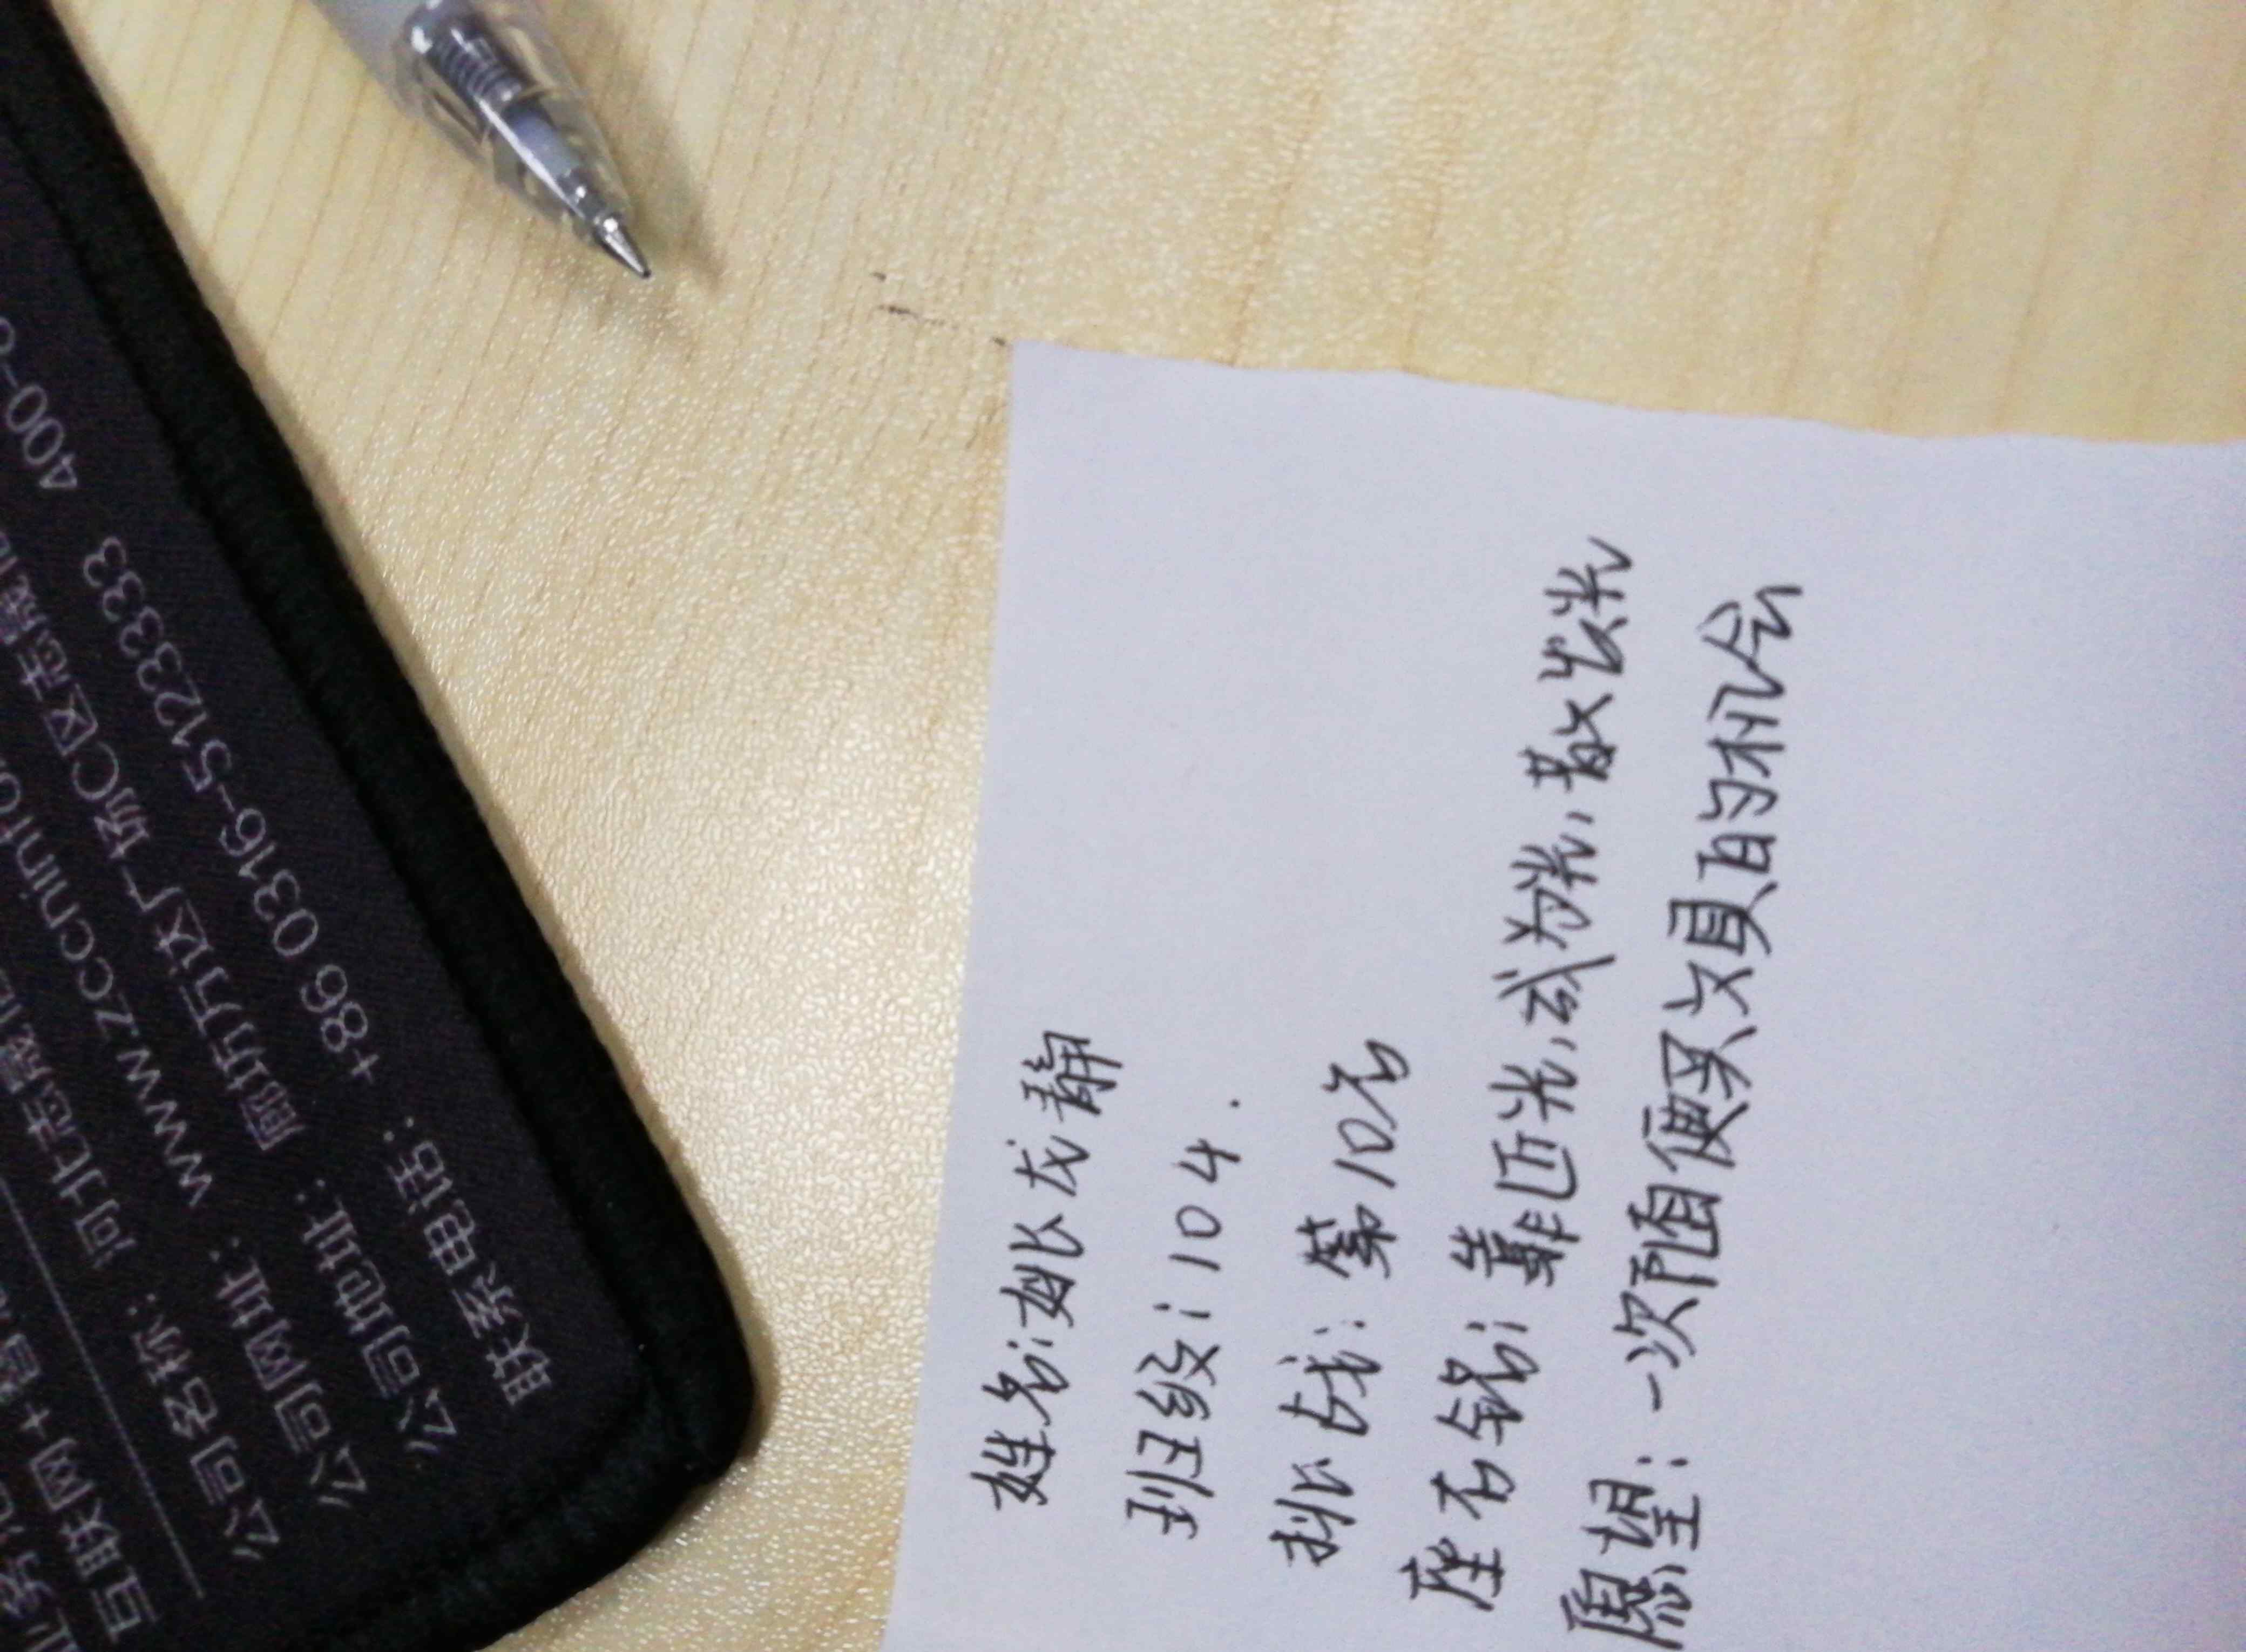 联网+
公司名称： 河北志晟信
公司网址： www.zccninfo.
公司地址： 廊坊万达广场C区志晟
联系电话： +86 0316-5123333 400-
姓名:姚龙静
班级:104.
挑战:第10名
座右铭:靠近光,成为光,散发光
愿望:一次随便买文具的机会